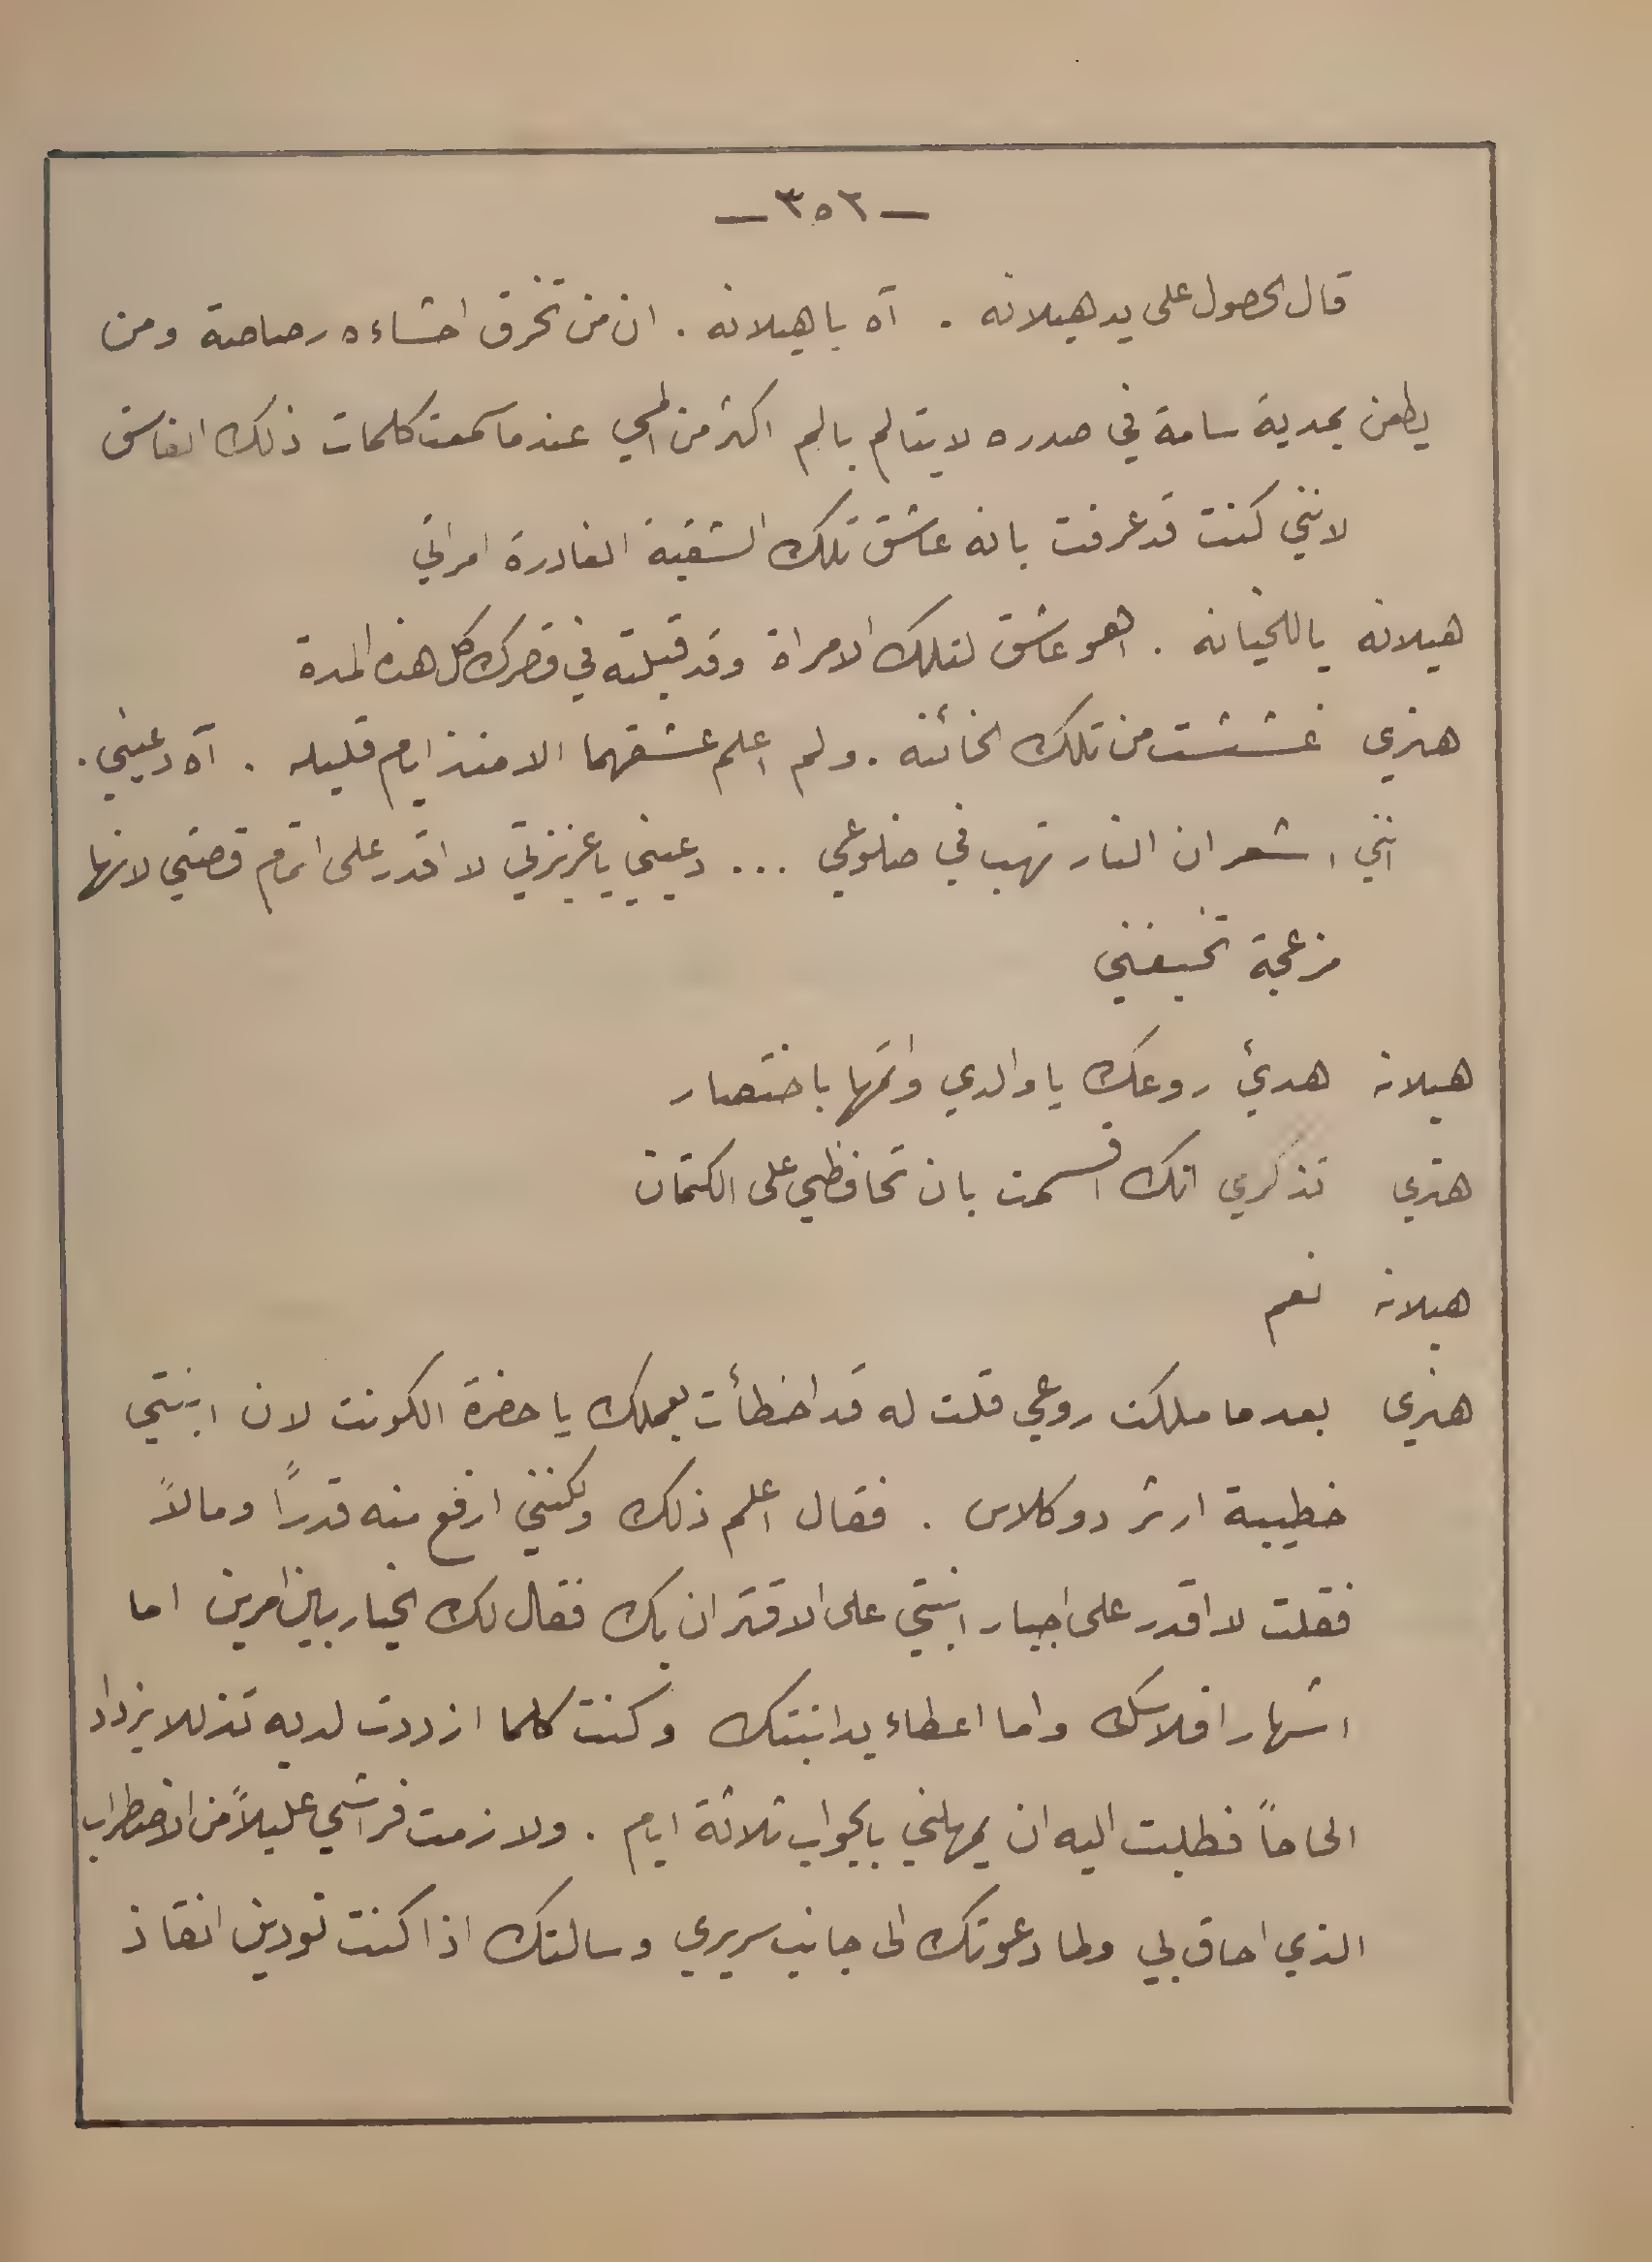 — ٣٥٢ —
قال الحصول على يد هيلانه . آه يا هيلانه . ان من تخرق احشاءه رصاصة ومن
يطعن بمدية سامة في صدره لا يتالم بالم اكثر من المي عندما سمعت كلمات ذلك الفاسق
لانني كنت قد عرفت بانه عاشق تلك الشقية الغادرة امراتي
هيلانه ياللخيانه . اهو عاشق لتلك الامراة وقد قبلته في قصرك كل هذه المدة
هنري غششت من تلك الخائنه . ولم اعلم عشقهما الا منذ ايام قليله . آه دعيني .
انني اشعر ان النار تهب في ضلوعي ... دعيني يا عزيزتي لا اقدر على اتمام قصتي لانها
مزعجة تخيفني
هيلانه هدئ روعك يا والدي واتمها باختصار
هنري تذكري انك اقسمت بان تحافظي على الكتمان
هيلانه نعم
هنري بعد ما ملكت روعي قلت له قد اخطأت بعملك يا حضرة الكونت لان ابنتي
خطيبة ارثر دوكلاس . فقال اعلم ذلك ولكنني ارفع منه قدرًا ومالاً
فقلت لا اقدر على اجبار ابنتي على الاقتران بك فقال لك الخيار بين امرين اما
اشهار افلاسك واما اعطاء يد ابنتك وكنت كلما ازددت لديه تذللا يزداد
الحاحاً فطلبت اليه ان يمهلني بالجواب ثلاثة ايام . ولازمت فراشي عليلاً من الاضطراب
الذي احاق بي ولما دعوتك الى جانب سريري وسالتك اذا كنت تودين انقاذ